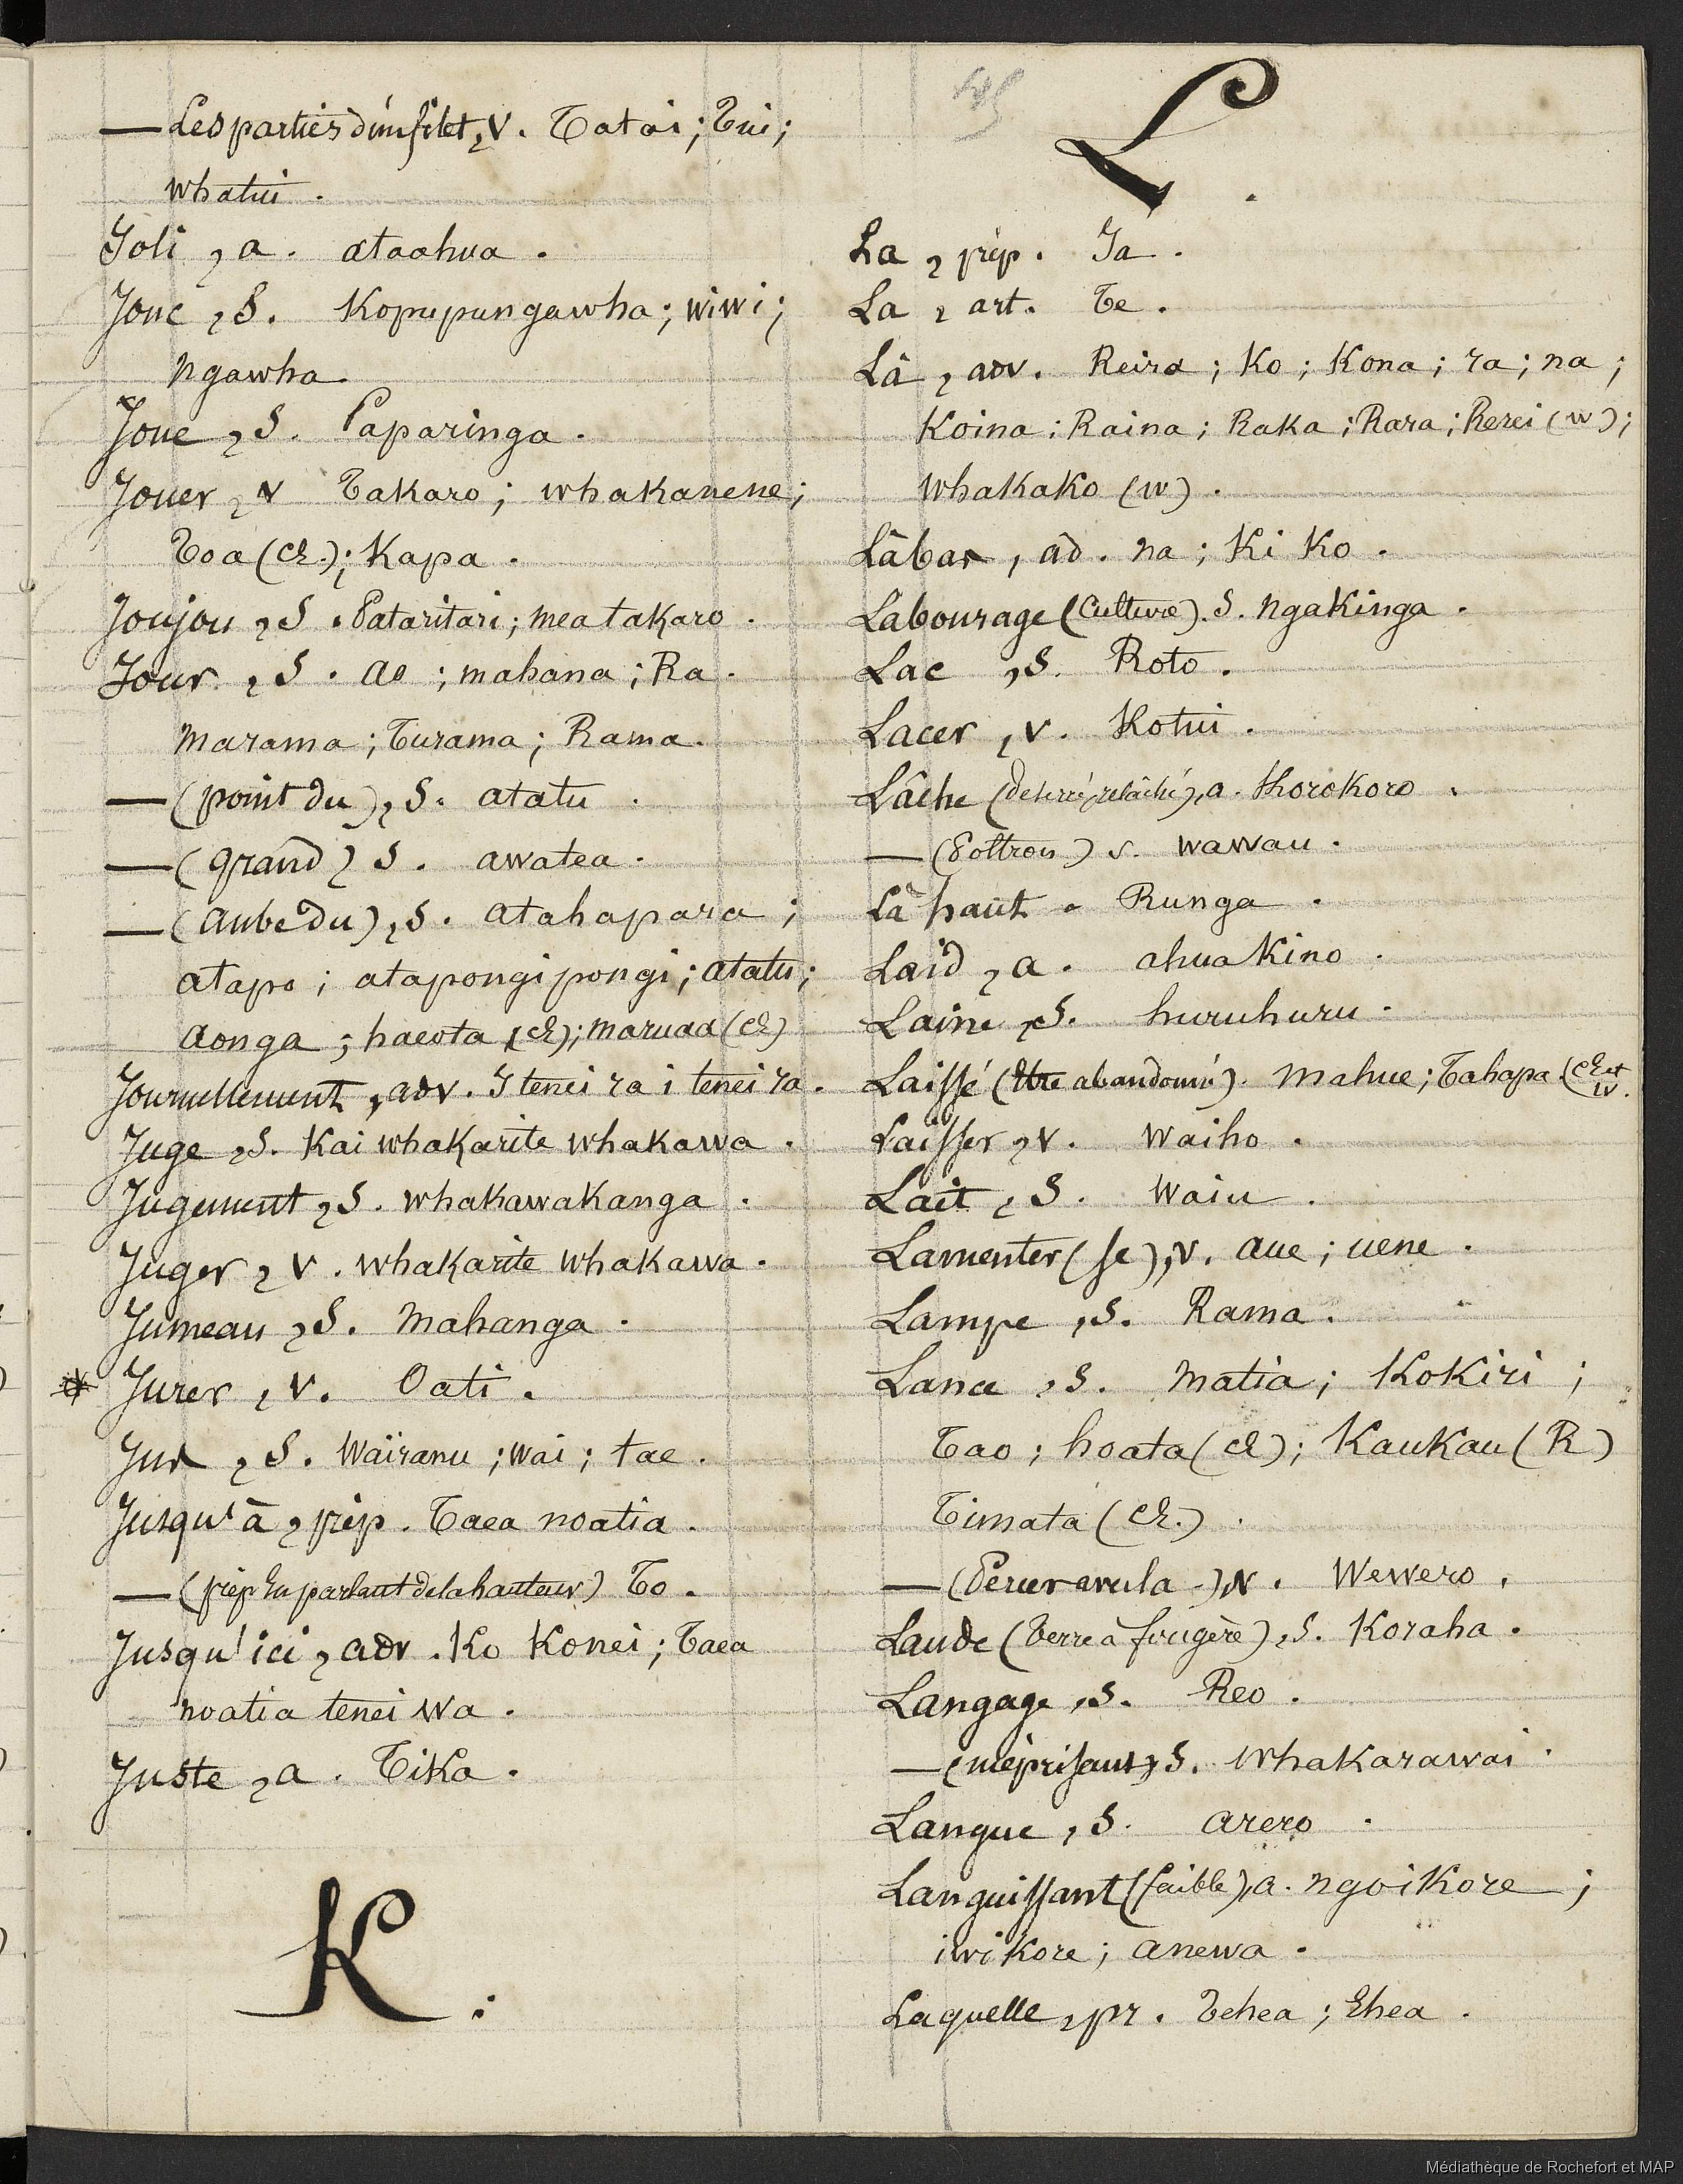 — Les parties d'un filet, v. Tatai; Tui;
whatui.
Joli, a. ataahua.
Jonc, S. Kopupungawha; wiwi;
ngawha.
Joue, S. Paparinga.
Jouer, v Takaro; whakanene;
Toa (Ch.); Kapa.
Joujou, S. Pataritari; mea takaro.
Jour, S. ao; mahana; Ra.
marama; Turama; Rama.
— (point du), S. atatu.
— (grand) S. awatea.
— (aube du), S. atahapara;
atapo; atapongipongi; atatu;
aonga; haeota (Ch); maruaa (Ch)
Journellement, adv. I tenei ra i tenei ra.
Juge, S. Kai whakarite whakawa.
Jugement, S. whakawakanga.
Juger, v. whakarite whakawa.
Jumeau, S. mahanga.
* Jurer, v. Oati.
Jus, S. Wairanu; wai; tae.
Jusqu'à, prép. Taea noatia.
— (prép En parlant de la hauteur) To.
Jusqu'ici, adv. Ko Konei; Taea
noatia tenei wa.
Juste, a. Tika.
K.
L.
La, prép. Ia.
La, art. Te.
Là, adv. Reira; Ko; Kona; ra; na;
Koina; Raina; Raka; Rara; Rerei (w);
whakako (w).
Làbas, ad. na; Ki Ko.
Labourage (Culture). S. ngakinga.
Lac, S. Roto.
Lacer, v. Kotui.
Lâche (deserré, relâché), a. Korokoro.
— (Poltron) s. wawau.
Là haut. Runga.
Laid, a. ahua Kino.
Laine, S. huruhuru.
Laissé (Etre abandonné). mahue; Tahapa (Ch et w.
Laisser, v. Waiho.
Lait, S. Waiu.
Lamenter (se), v. aue; uene.
Lampe, S. Rama.
Lance, S. matia; Kokiri;
Tao; hoata (Ch); Kaukau (R)
Timata (Ch.).
— (Percer avec la), v. Wewero.
Lande (Terre à fougère), S. Koraha.
Langage, S. Reo.
— (méprisant), S. Whakarawai.
Langue, S. arero.
Languissant (faible), a. ngoikore;
iwi Kore; anewa.
Laquelle, pr. Tehea; Ehea.
Médiathèque de Rochefort et MAP